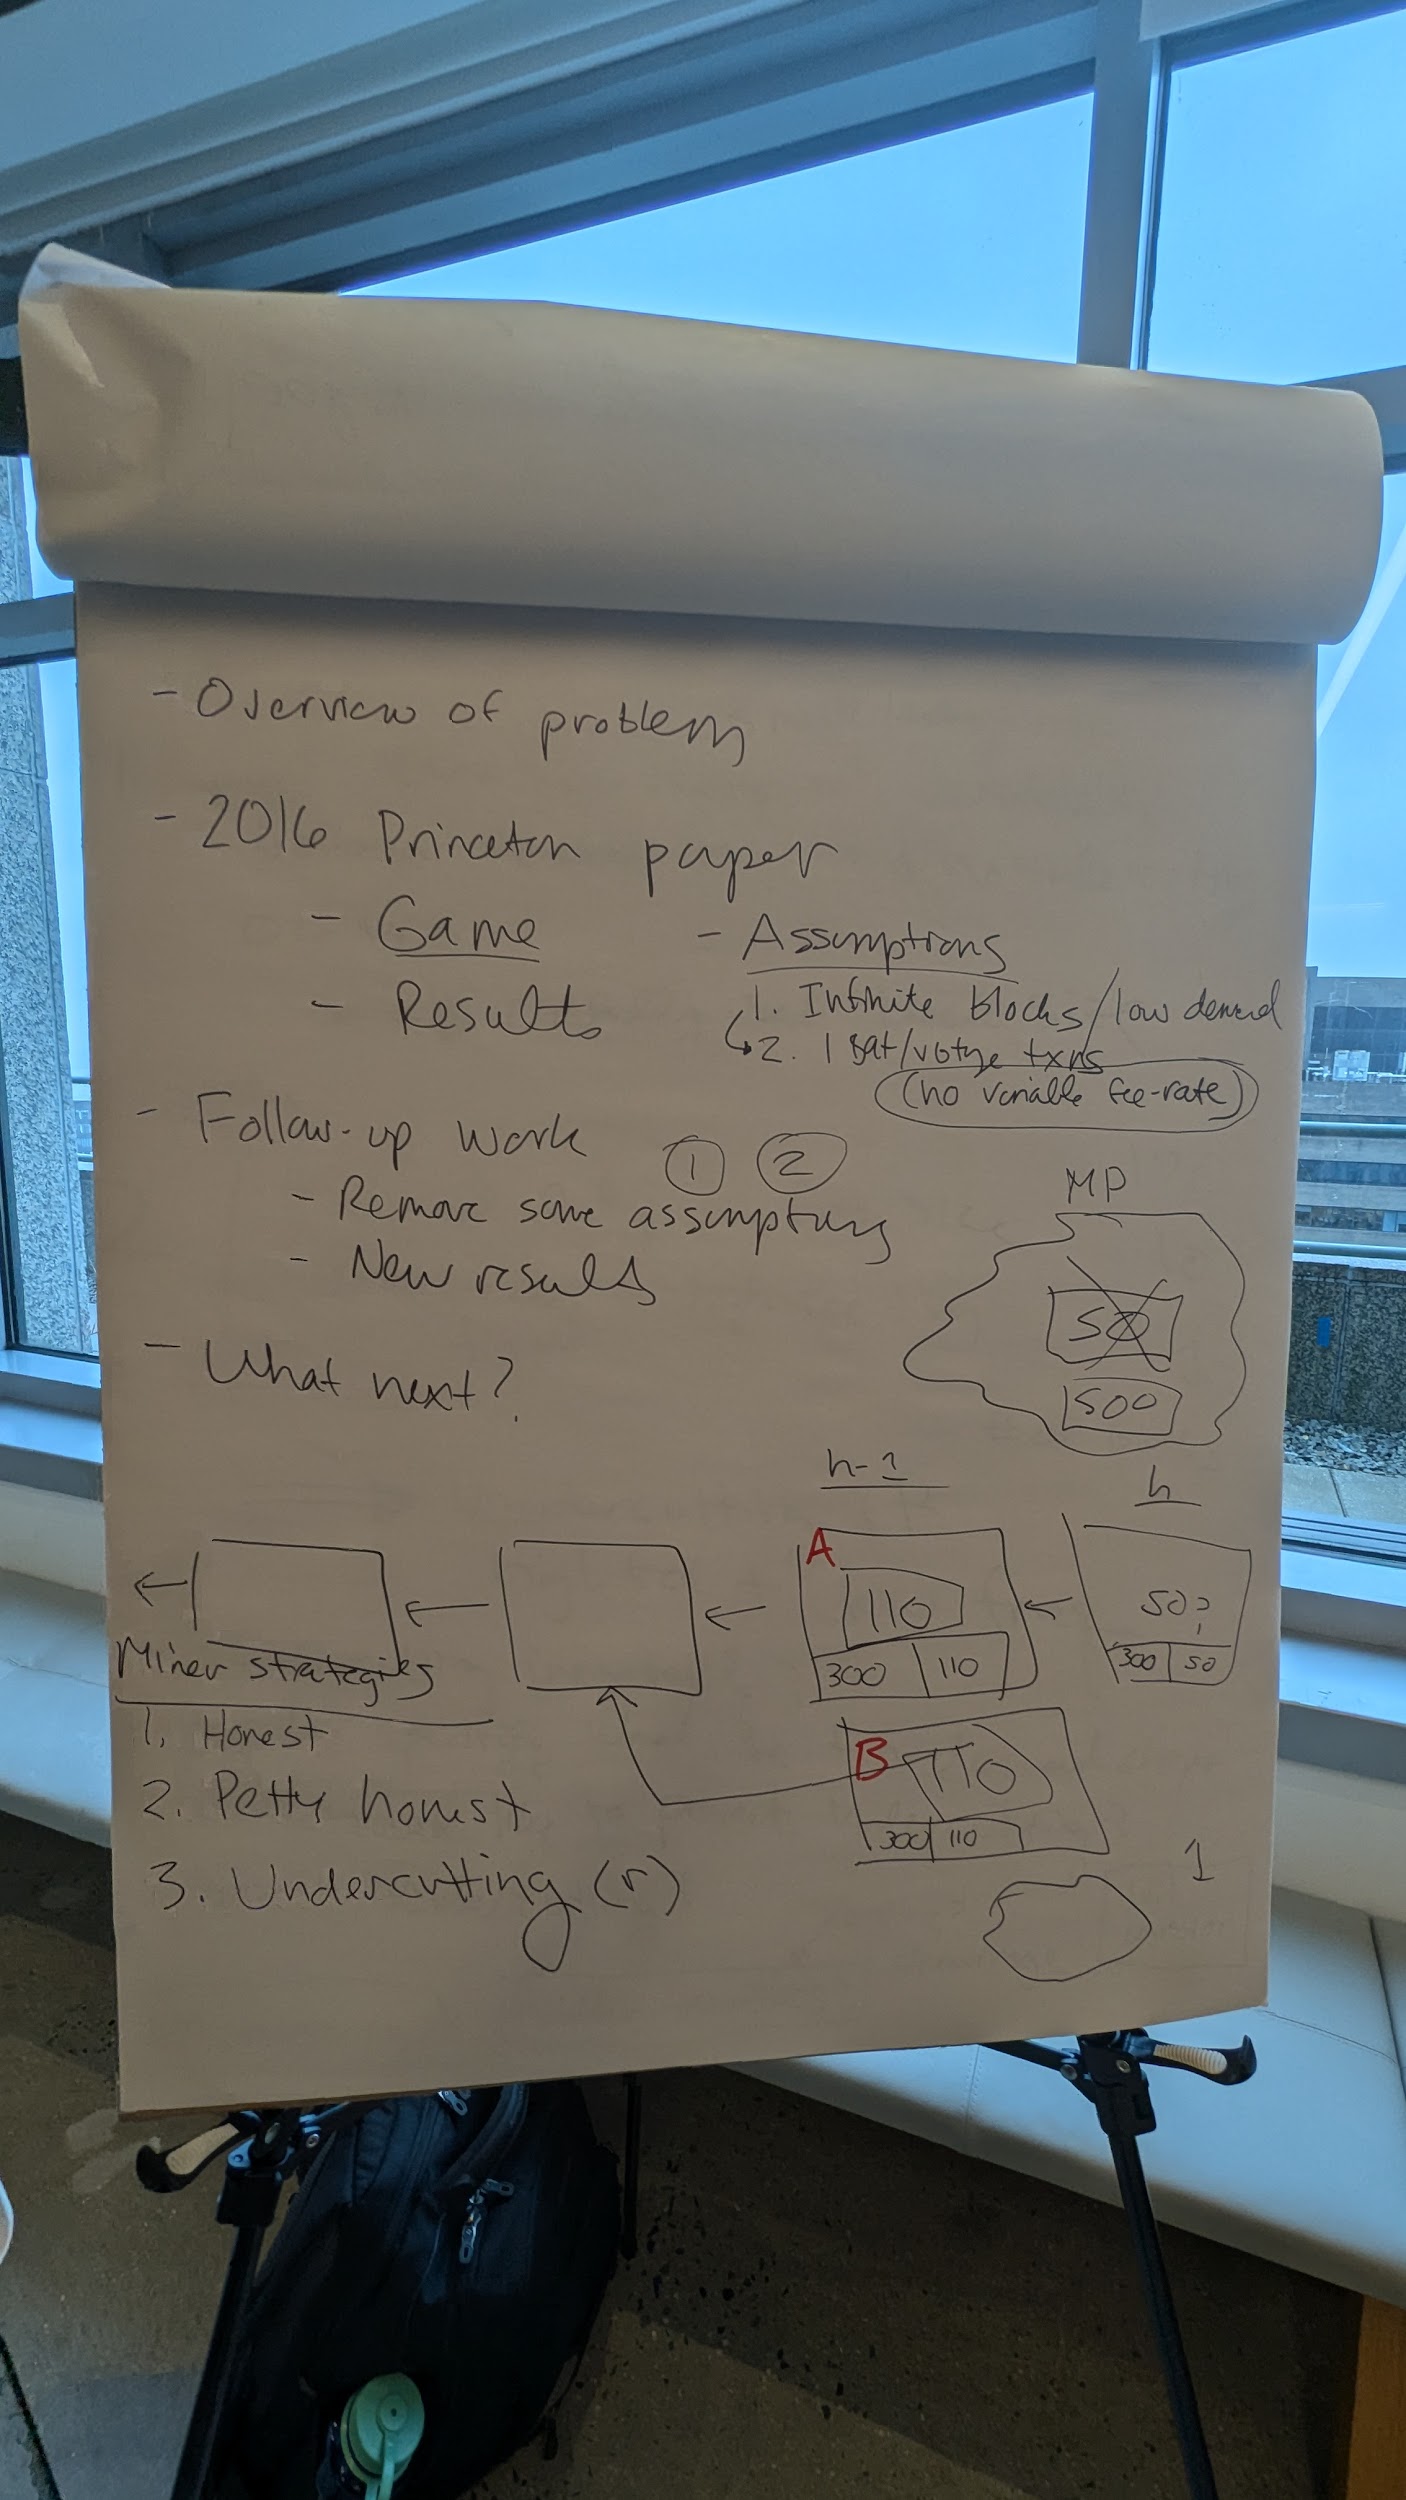 - Overview of problem
- 2016 Princeton paper
- Game
- Results
- Assumptions
1. Infinite blocks/low demand
2. 1 sat/vbyte txns
(no variable fee-rate)
- Follow-up work
1 2
- Remove some assumptions
- New results
- What next?
MP
50
500
h-1
h
A
110
300 110
50
300 50
B
110
300 110
1
Miner strategies
1. Honest
2. Petty honest
3. Undercutting (r)